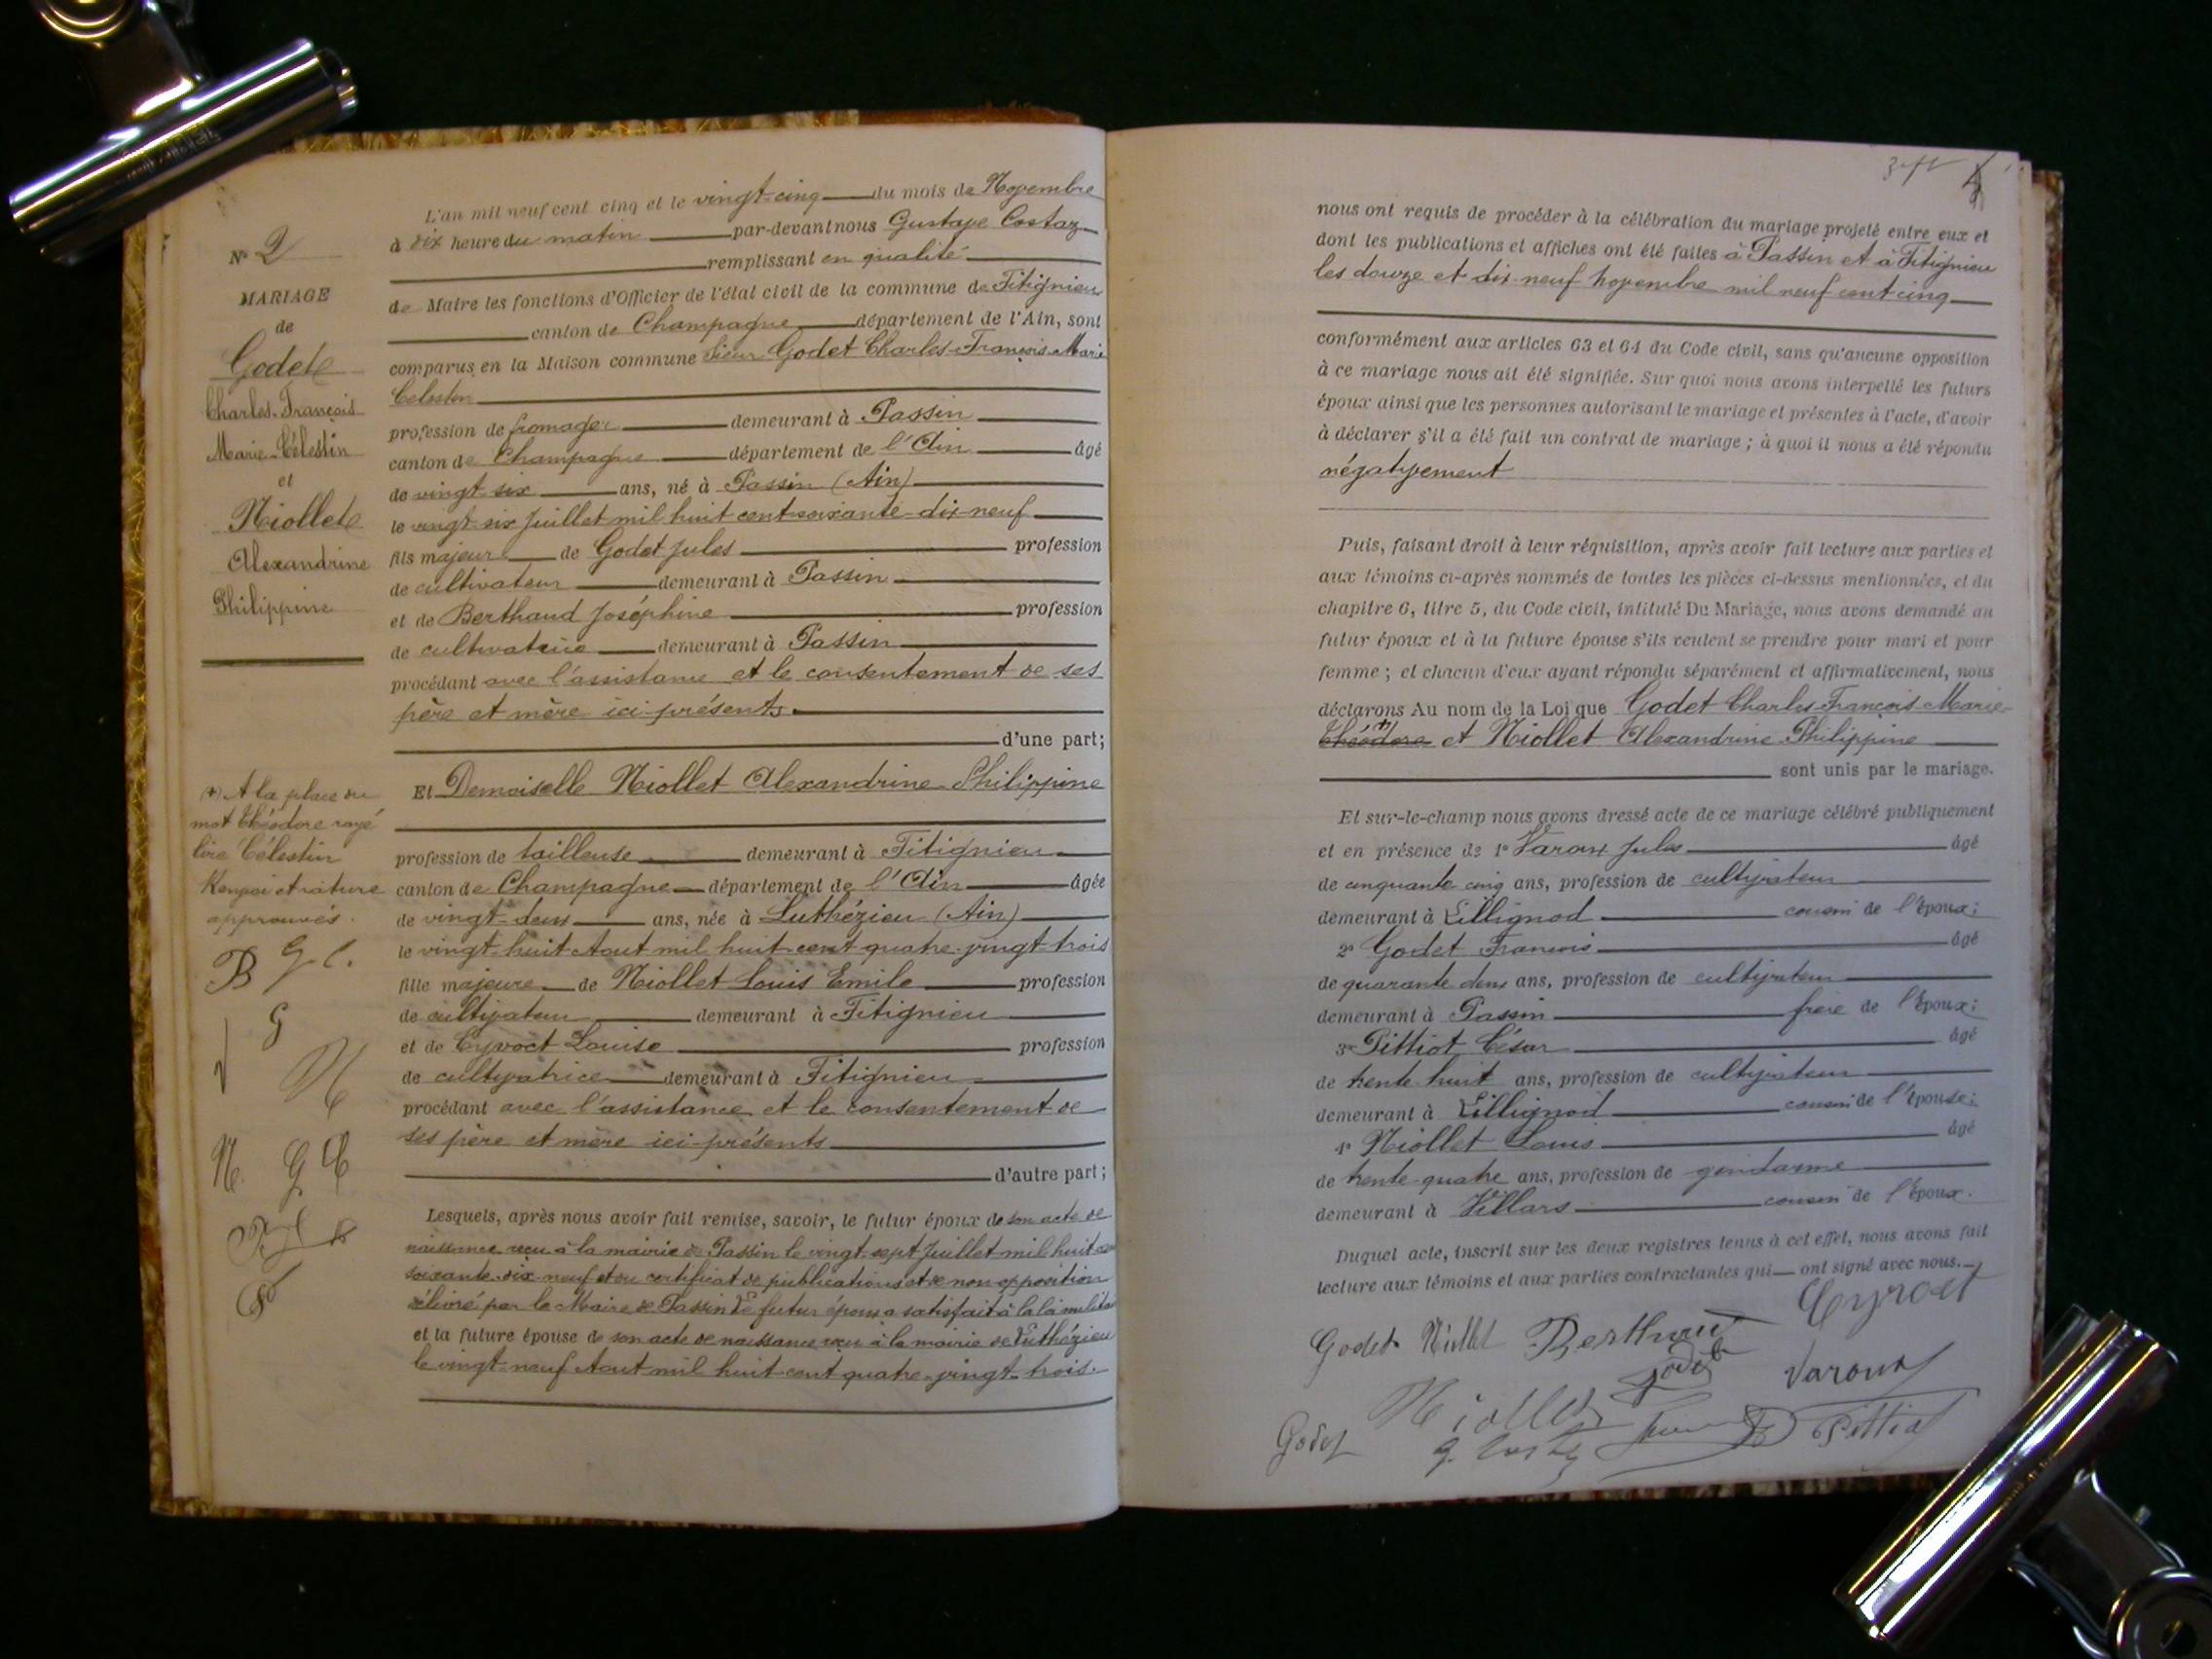 N° 2
MARIAGE
de
Godet
Charles-François
Marie-Célestin
et
Niollet
Alexandrine
Philippine
(+) A la place du
mot Théodore rayé
lire Célestin
Renvoi et rature
approuvés.
B G C.
G
V N
N. G C
L'an mil neuf cent cinq et le vingt-cinq du mois de Novembre
à dix heure du matin par-devant nous Gustave Costaz
remplissant en qualité
de Maire les fonctions d'Officier de l'état civil de la commune de Fitignieu
canton de Champagne département de l'Ain, sont
comparus en la Maison commune Sieur Godet Charles-François-Marie
Célestin
profession de fromager demeurant à Passin
canton de Champagne département de l'Ain âgé
de vingt-six ans, né à Passin (Ain)
le vingt-six Juillet mil huit cent soixante-dix-neuf
fils majeur de Godet Jules profession
de cultivateur demeurant à Passin
et de Berthaud Joséphine profession
de cultivatrice demeurant à Passin
procédant avec l'assistance et le consentement de ses
père et mère ici présents
d'une part;
Et Demoiselle Niollet Alexandrine-Philippine
profession de tailleuse demeurant à Fitignieu
canton de Champagne département de l'Ain âgée
de vingt-deux ans, née à Luthézieu (Ain)
le vingt-huit Aout mil huit cent quatre-vingt-trois
fille majeure de Niollet Louis Emile profession
de cultivateur demeurant à Fitignieu
et de Cyvoct Louise profession
de cultivatrice demeurant à Fitignieu
procédant avec l'assistance et le consentement de
ses père et mère ici présents
d'autre part;
Lesquels, après nous avoir fait remise, savoir, le futur époux de son acte de
naissance reçu à la mairie de Passin le vingt-sept Juillet mil huit cent
soixante-dix-neuf et du certificat de publications et de non opposition
délivré par le Maire de Passin Le futur époux a satisfait à la loi militaire
et la future épouse de son acte de naissance reçu à la mairie de Luthézieu
le vingt-neuf Aout mil huit cent quatre-vingt-trois.
nous ont requis de procéder à la célébration du mariage projeté entre eux et
dont les publications et affiches ont été faites à Passin et à Fitignieu
les douze et dix-neuf novembre mil neuf cent cinq
conformément aux articles 63 et 64 du Code civil, sans qu'aucune opposition
à ce mariage nous ait été signifiée. Sur quoi nous avons interpellé les futurs
époux ainsi que les personnes autorisant le mariage et présentes à l'acte, d'avoir
à déclarer s'il a été fait un contrat de mariage ; à quoi il nous a été répondu
négativement
Puis, faisant droit à leur réquisition, après avoir fait lecture aux parties et
aux témoins ci-après nommés de toutes les pièces ci-dessus mentionnées, et du
chapitre 6, titre 5, du Code civil, intitulé Du Mariage, nous avons demandé au
futur époux et à la future épouse s'ils veulent se prendre pour mari et pour
femme ; et chacun d'eux ayant répondu séparément et affirmativement, nous
déclarons Au nom de la Loi que Godet Charles-François-Marie-
Théodore (+) et Niollet Alexandrine-Philippine
sont unis par le mariage.
Et sur-le-champ nous avons dressé acte de ce mariage célébré publiquement
et en présence de 1° Varoux Jules âgé
de cinquante cinq ans, profession de cultivateur
demeurant à Lillignod cousin de l'Epoux;
2° Godet Francois âgé
de quarante deux ans, profession de cultivateur
demeurant à Passin frère de l'Epoux;
3° Pittiot César âgé
de trente-huit ans, profession de cultivateur
demeurant à Lillignod cousin de l'Epouse;
4° Niollet Louis âgé
de trente-quatre ans, profession de gendarme
demeurant à Villars cousin de l'Epoux.
Duquel acte, inscrit sur les deux registres tenus à cet effet, nous avons fait
lecture aux témoins et aux parties contractantes qui ont signé avec nous.
Cyvoct
Godet Niollet Berthaud
Godet Varoux
Niollet
Godet G. Costaz Pittiot